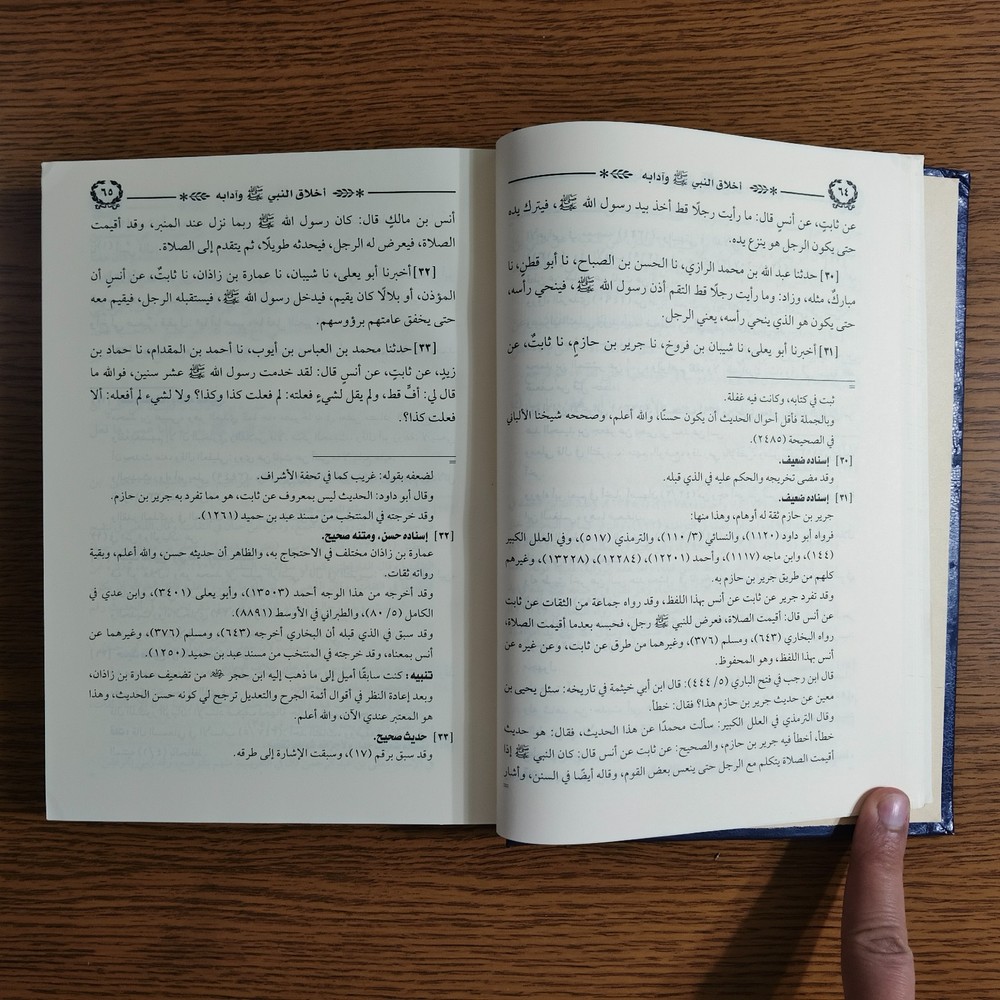 ٦٤
أخلاق النبي ﷺ وآدابه
عن ثابتٍ، عن أنسٍ قال: ما رأيت رجلًا قط أخذ بيد رسول الله ﷺ، فيترك يده
حتى يكون الرجل هو ينزع يده.
[٢٠] حدثنا عبد الله بن محمد الرازي، نا الحسن بن الصباح، نا أبو قطنٍ، نا
مباركٌ، مثله، وزاد: وما رأيت رجلًا قط التقم أذن رسول الله ﷺ، فينحي رأسه،
حتى يكون هو الذي ينحي رأسه، يعني الرجل.
[٢١] أخبرنا أبو يعلى، نا شيبان بن فروخ، نا جرير بن حازمٍ، نا ثابتٌ، عن
=
ثبت في كتابه، وكانت فيه غفلة.
وبالجملة فأقل أحوال الحديث أن يكون حسنًا، والله أعلم، وصححه شيخنا الألباني
في الصحيحة (٢٤٨٥).
[٢٠] إسناده ضعيف.
وقد مضى تخريجه والحكم عليه في الذي قبله.
[٢١] إسناده ضعيف.
جرير بن حازم ثقة له أوهام، وهذا منها:
فرواه أبو داود (١١٢٠)، والنسائي (٣/ ١١٠)، والترمذي (٥١٧)، وفي العلل الكبير
(١٤٤)، وابن ماجه (١١١٧)، وأحمد (١٢٢٠١)، (١٢٢٨٤)، (١٣٢٢٨)، وغيرهم
كلهم من طريق جرير بن حازم به.
وقد تفرد جرير عن ثابت عن أنس بهذا اللفظ، وقد رواه جماعة من الثقات عن ثابت
عن أنس قال: أقيمت الصلاة، فعرض للنبي ﷺ رجل، فحبسه بعدما أقيمت الصلاة،
رواه البخاري (٦٤٣)، ومسلم (٣٧٦)، وغيرهما من طرق عن ثابت، وعن غيره عن
أنس بهذا اللفظ، وهو المحفوظ.
قال ابن رجب في فتح الباري (٥/ ٤٤٤): قال ابن أبي خيثمة في تاريخه: سئل يحيى بن
معين عن حديث جرير بن حازم هذا؟ فقال: خطأ.
وقال الترمذي في العلل الكبير: سألت محمدًا عن هذا الحديث، فقال: هو حديث
خطأ، أخطأ فيه جرير بن حازم، والصحيح: عن ثابت عن أنس قال: كان النبي ﷺ إذا
أقيمت الصلاة يتكلم مع الرجل حتى ينعس بعض القوم، وقاله أيضًا في السنن، وأشار
=
٦٥
أخلاق النبي ﷺ وآدابه
أنس بن مالكٍ قال: كان رسول الله ﷺ ربما نزل عند المنبر، وقد أقيمت
الصلاة، فيعرض له الرجل، فيحدثه طويلًا، ثم يتقدم إلى الصلاة.
[٢٢] أخبرنا أبو يعلى، نا شيبان، نا عمارة بن زاذان، نا ثابتٌ، عن أنسٍ أن
المؤذن، أو بلالًا كان يقيم، فيدخل رسول الله ﷺ، فيستقبله الرجل، فيقيم معه
حتى يخفق عامتهم برؤوسهم.
[٢٣] حدثنا محمد بن العباس بن أيوب، نا أحمد بن المقدام، نا حماد بن
زيدٍ، عن ثابتٍ، عن أنسٍ قال: لقد خدمت رسول الله ﷺ عشر سنين، فوالله ما
قال لي: أفٍّ قط، ولم يقل لشيءٍ فعلته: لم فعلت كذا وكذا؟ ولا لشيء لم أفعله: ألا
فعلت كذا؟.
=
لضعفه بقوله: غريب كما في تحفة الأشراف.
وقال أبو داود: الحديث ليس بمعروف عن ثابت، هو مما تفرد به جرير بن حازم.
وقد خرجته في المنتخب من مسند عبد بن حميد (١٢٦١).
[٢٢] إسناده حسن، ومتنه صحيح.
عمارة بن زاذان مختلف في الاحتجاج به، والظاهر أن حديثه حسن، والله أعلم، وبقية
رواته ثقات.
وقد أخرجه من هذا الوجه أحمد (١٣٥٠٣)، وأبو يعلى (٣٤٠١)، وابن عدي في
الكامل (٥/ ٨٠)، والطبراني في الأوسط (٨٨٩١).
وقد سبق في الذي قبله أن البخاري أخرجه (٦٤٣)، ومسلم (٣٧٦)، وغيرهما عن
أنس بمعناه، وقد خرجته في المنتخب من مسند عبد بن حميد (١٢٥٠).
تنبيه: كنت سابقًا أميل إلى ما ذهب إليه ابن حجر من تضعيف عمارة بن زاذان،
وبعد إعادة النظر في أقوال أئمة الجرح والتعديل ترجح لي كونه حسن الحديث، وهذا
هو المعتبر عندي الآن، والله أعلم.
[٢٣] حديث صحيح.
وقد سبق برقم (١٧)، وسبقت الإشارة إلى طرقه.